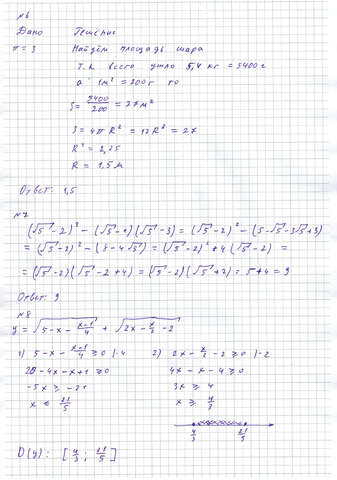 №6
Дано Решение
π = 3 Найдём площадь шара
Т.к всего ушло 5,4 кг = 5400 г
а 1м² = 200 г то
S = 5400/200 = 27 м²
S = 4πR² = 12R² = 27
R² = 2,25
R = 1,5 м
Ответ: 1,5
№7
(√5 - 2)² - (√5 - 1)(√5 - 3) = (√5 - 2)² - (5 - √5 - 3√5 + 3)
= (√5 - 2)² - (8 - 4√5) = (√5 - 2)² + 4(√5 - 2) =
= (√5 - 2)(√5 - 2 + 4) = (√5 - 2)(√5 + 2) = 5 + 4 = 9
Ответ: 9
№8
y = √(5 - x - (x-1)/4) + √(2x - x/2 - 2)
1) 5 - x - (x-1)/4 ≥ 0 |·4 2) 2x - x/2 - 2 ≥ 0 |·2
20 - 4x - x + 1 ≥ 0 4x - x - 4 ≥ 0
-5x ≥ -21 3x ≥ 4
x ≤ 21/5 x ≥ 4/3
4/3 21/5
D(y): [4/3; 21/5]